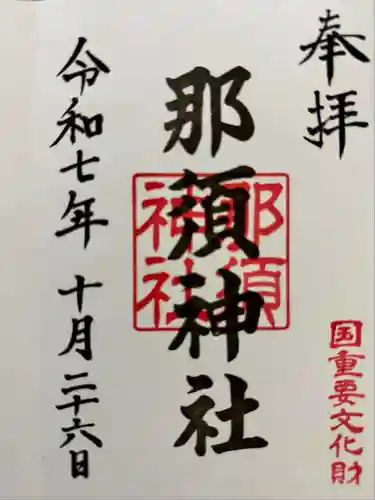 奉拝
国重要文化財
那須神社
那須神社
令和七年 十月二十六日